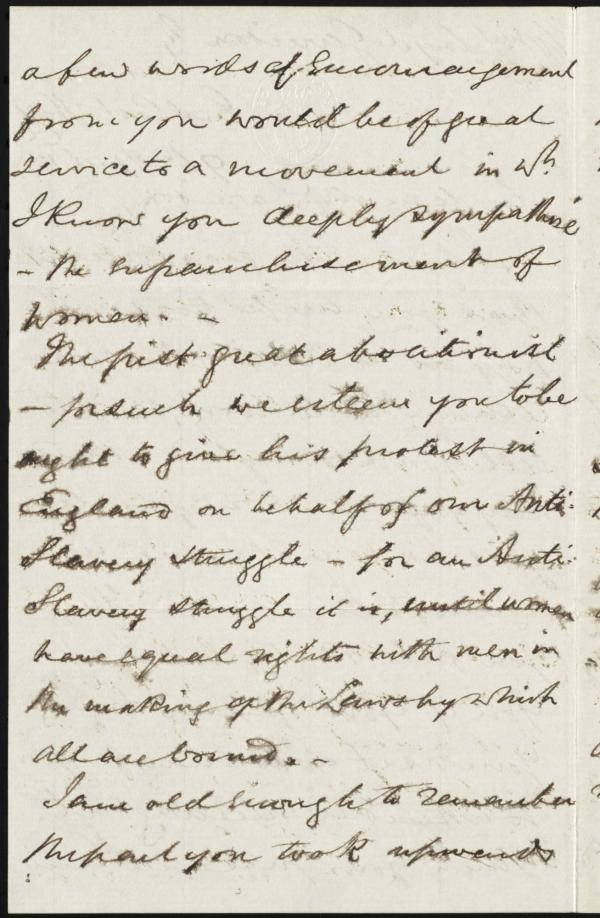 a few words of Encouragement
from you would be of great
service to a movement in wh.
I Know you deeply sympathise
- the enfranchisement of
women. -
The first great abolitionist
- for such we esteem you to be
ought to give his protest in
England on behalf of our Anti-
Slavery struggle - for an Anti-
Slavery struggle it is, until women
have equal rights with men in
the making of the Laws by which
all are bound. -
I am old enough to remember
the part you took upwards